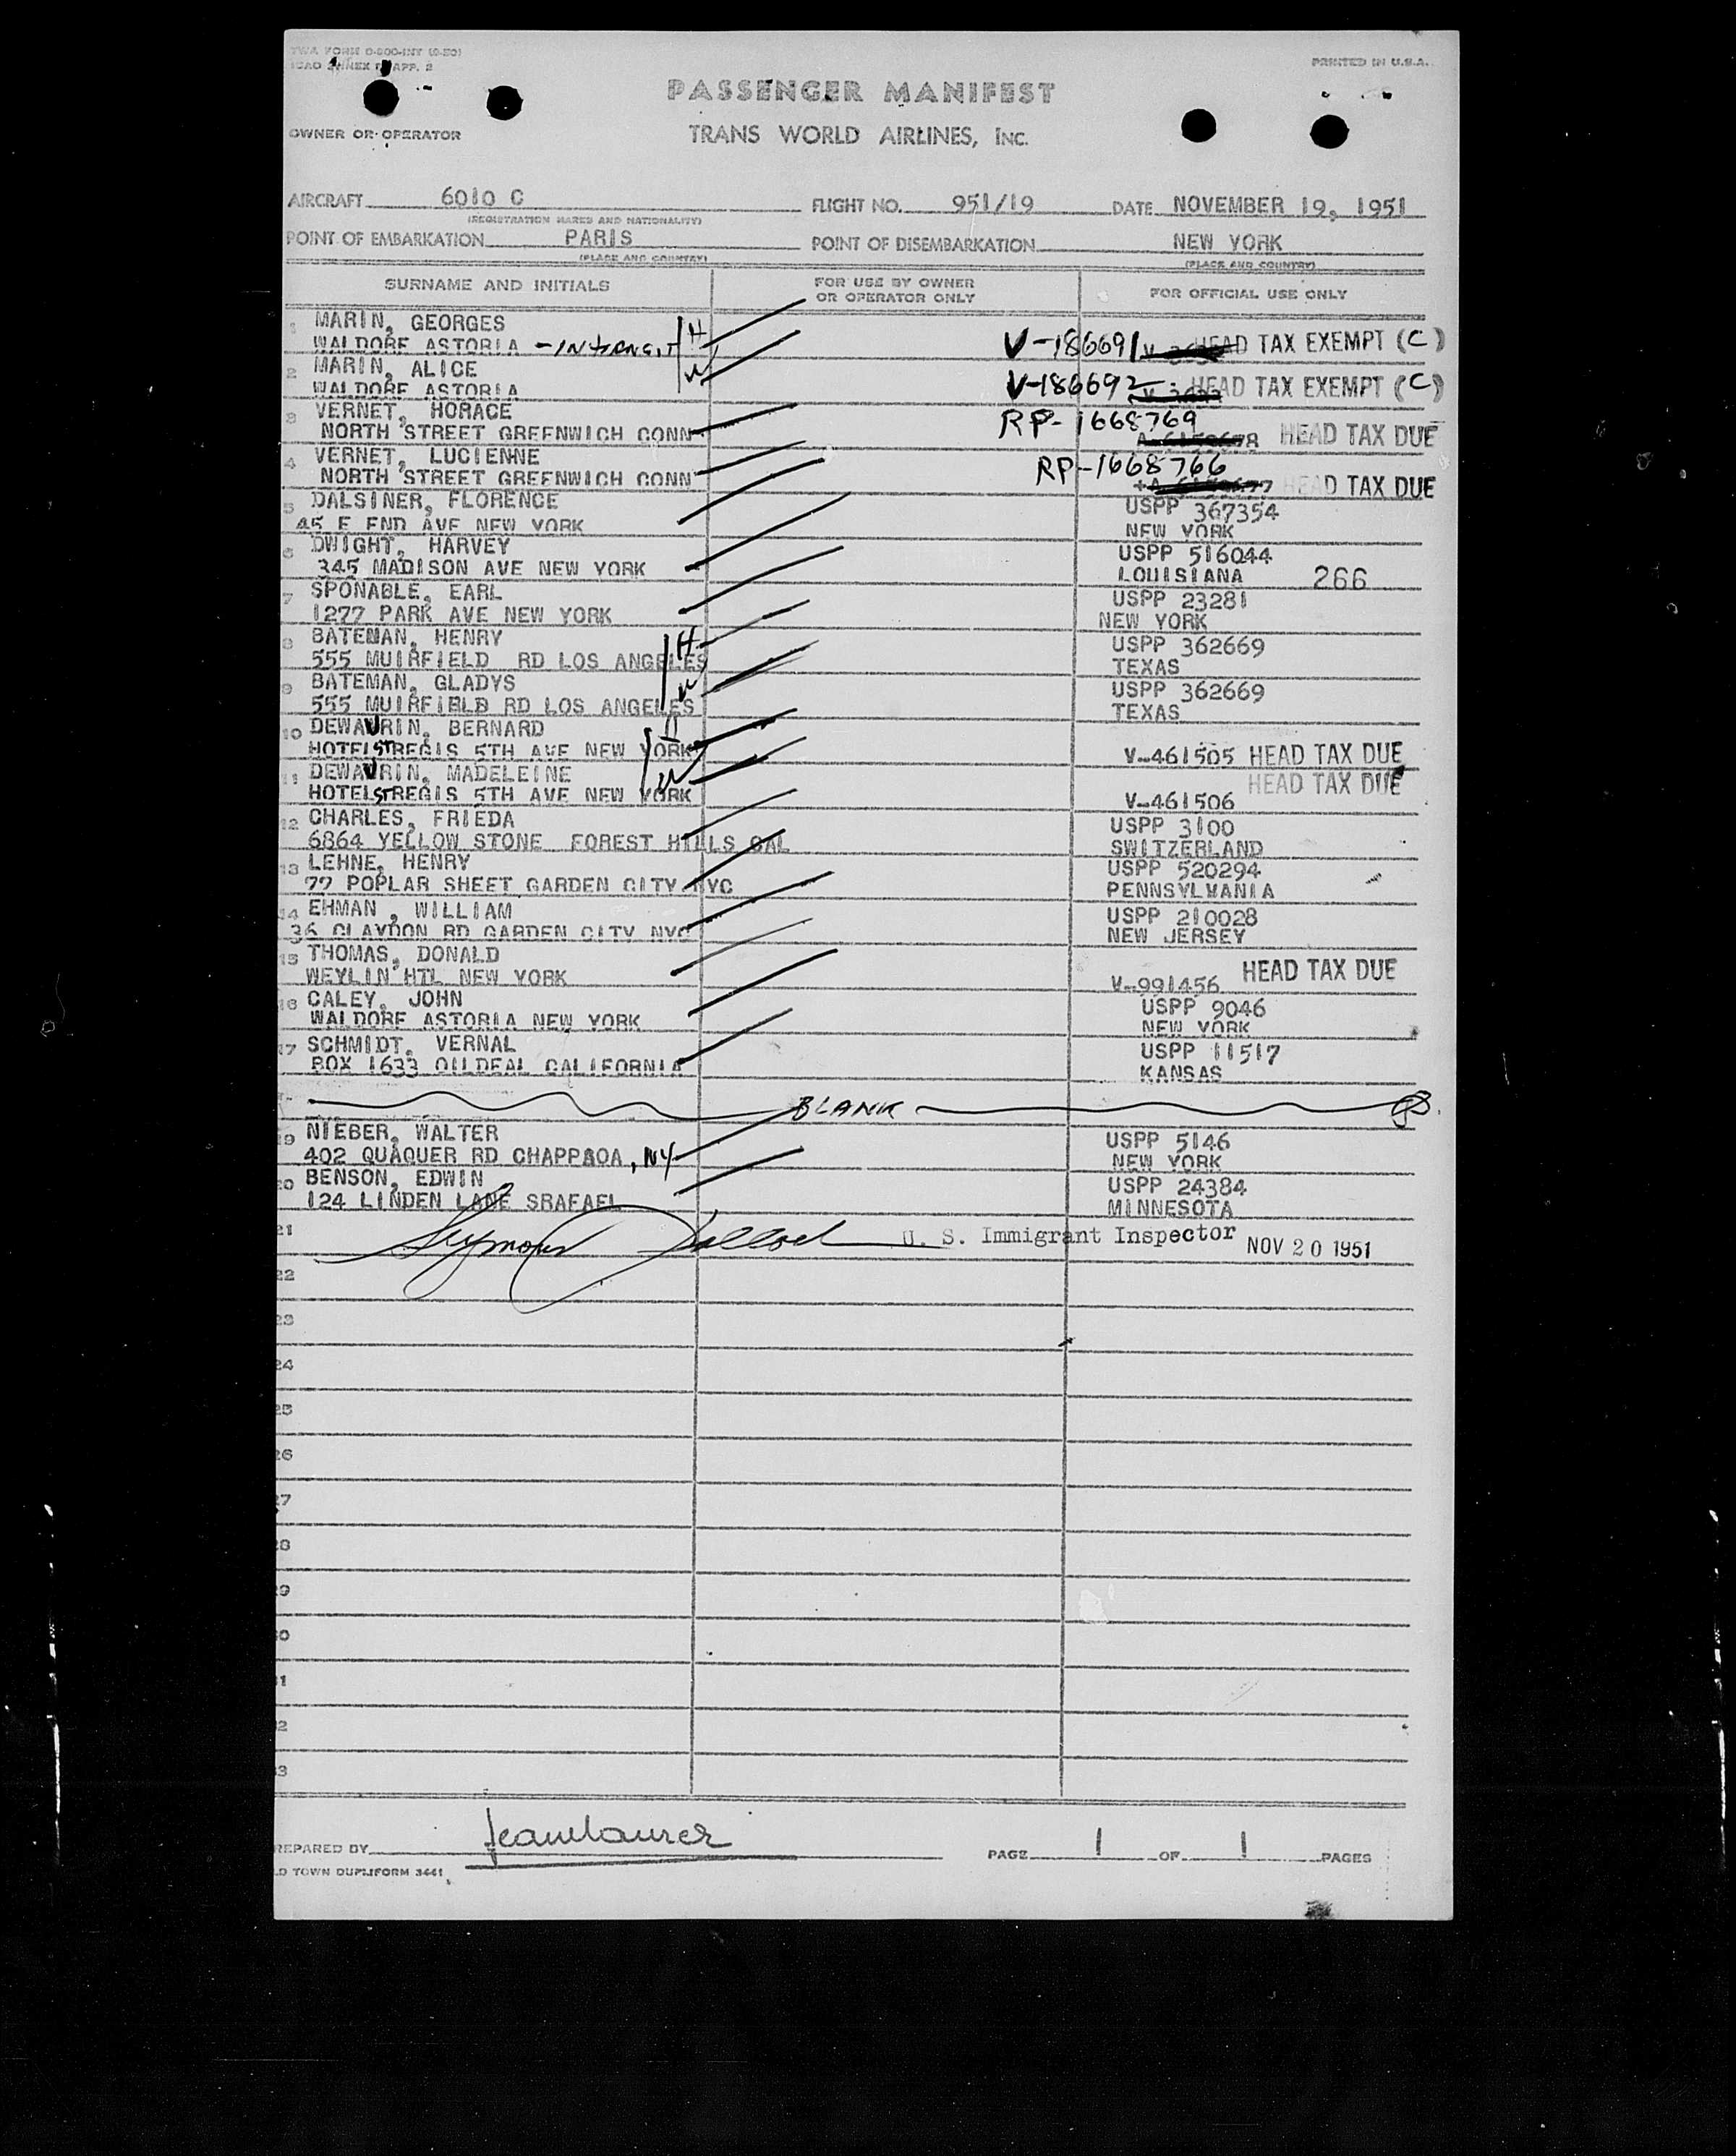 TWA FORM O-800-INT (9-50)
ICAO ANNEX 9 APP. 2
PRINTED IN U.S.A.
PASSENGER MANIFEST
OWNER OR OPERATOR
TRANS WORLD AIRLINES, INC.
AIRCRAFT 6010 C FLIGHT NO. 951/19 DATE NOVEMBER 19, 1951
(REGISTRATION MARKS AND NATIONALITY)
POINT OF EMBARKATION PARIS POINT OF DISEMBARKATION NEW YORK
(PLACE AND COUNTRY) (PLACE AND COUNTRY)
SURNAME AND INITIALS FOR USE BY OWNER OR OPERATOR ONLY FOR OFFICIAL USE ONLY
1 MARIN, GEORGES H
WALDORF ASTORIA - INTRANSIT V-186691 HEAD TAX EXEMPT (C)
2 MARIN, ALICE W
WALDORF ASTORIA V-186692 HEAD TAX EXEMPT (C)
3 VERNET, HORACE RP-1668769
NORTH STREET GREENWICH CONN HEAD TAX DUE
4 VERNET, LUCIENNE RP-1668766
NORTH STREET GREENWICH CONN HEAD TAX DUE
5 DALSINER, FLORENCE USPP 367354
45 E END AVE NEW YORK NEW YORK
6 DWIGHT, HARVEY USPP 516044
345 MADISON AVE NEW YORK LOUISIANA 266
7 SPONABLE, EARL USPP 23281
1277 PARK AVE NEW YORK NEW YORK
8 BATEMAN, HENRY H USPP 362669
555 MUIRFIELD RD LOS ANGELES TEXAS
9 BATEMAN, GLADYS W USPP 362669
555 MUIRFIBLB RD LOS ANGELES TEXAS
10 DEWAVRIN, BERNARD H
HOTEL ST REGIS 5TH AVE NEW YORK V-461505 HEAD TAX DUE
11 DEWAVRIN, MADELEINE W HEAD TAX DUE
HOTEL ST REGIS 5TH AVE NEW YORK V-461506
12 CHARLES, FRIEDA USPP 3100
6864 YELLOW STONE FOREST HILLS CAL SWITZERLAND
13 LEHNE, HENRY USPP 520294
77 POPLAR SHEET GARDEN CITY NYC PENNSYLVANIA
14 EHMAN , WILLIAM USPP 210028
36 CLAYDON RD GARDEN CITY NYC NEW JERSEY
15 THOMAS, DONALD HEAD TAX DUE
WEYLIN HTL NEW YORK V-991456
16 CALEY, JOHN USPP 9046
WALDORF ASTORIA NEW YORK NEW YORK
17 SCHMIDT, VERNAL USPP 11517
BOX 1633 OILDEAL CALIFORNIA KANSAS
BLANK
19 NIEBER, WALTER USPP 5146
402 QUAQUER RD CHAPPAQA, NY NEW YORK
20 BENSON, EDWIN USPP 24384
124 LINDEN LANE SRAFAEL MINNESOTA
21 Seymour Pollock U. S. Immigrant Inspector NOV 20 1951
22
23
24
25
26
27
28
29
30
31
32
33
PREPARED BY PAGE 1 OF 1 PAGES
OLD TOWN DUPLIFORM 3441